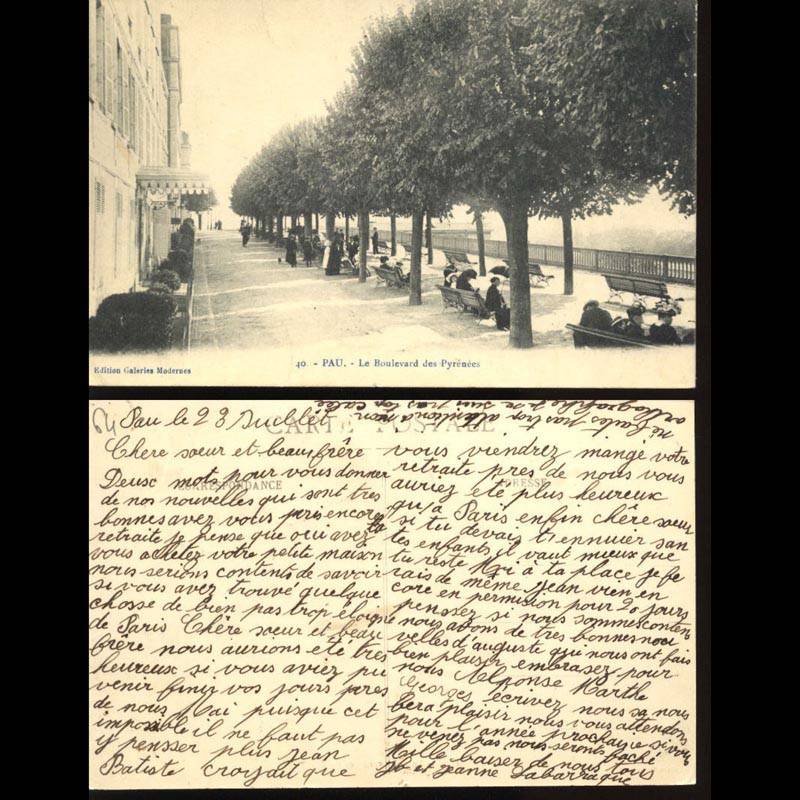 40. - PAU. - Le Boulevard des Pyrénées
Edition Galeries Modernes
CARTE POSTALE
CORRESPONDANCE
ADRESSE
Pau le 23 Juillet
Chere sœur et beau, frêre
Deux mot, pour vous donner
de nos nouvelles qui sont tres
bonnes avez vous pris encore ta
retraite je pense que oui avez
vous achetez votre petite maison
nous serions contents de savoir
si vous avez trouvé quelque
chosse de bien pas trop éloigné
de Paris Chêre sœur et beau
frêre nous aurions eté tres
heureux si vous aviez pu
venir finir vos jours pres
de nous Mai puisque cet
impossible il ne faut pas
y pensser plus jean
Batiste croyait que
vous viendrez mange votre
retraite pres de nous vous
auriez eté plus heureux
qu'a Paris enfin chêre sœur
si tu devais t'ennuier san
tes enfants il vaut mieux que
tu reste Moi à ta place je fe
rais de même jean vien en
core en permission pour 20 jours
penssez si nous sommes conten
nous avons de tres bonnes nou
velles d'auguste qui nous ont fais
bien plaisir embrasez pour
nous Alponse Marthe
Georges écrivez nous sa nous
fera plaisir nous vous attendons
pour l'année prochaine si vous
ne venez pas nous serons faché
Mille baisez de nous tous
Jb et jeanne Labarraque
ne faites pas attentions mon
ortographe je ne suis pas tres calée